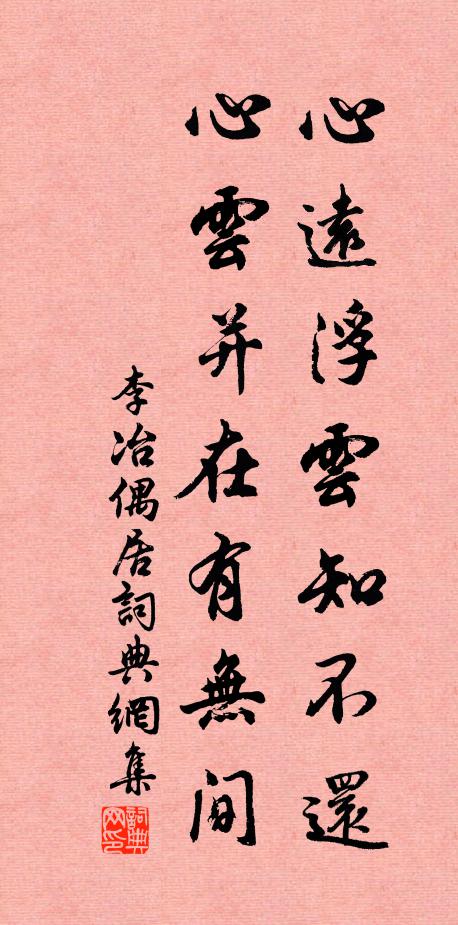 心遠浮雲知不還
心雲并在有無間
李冶偶居詞典網集
詞典网印